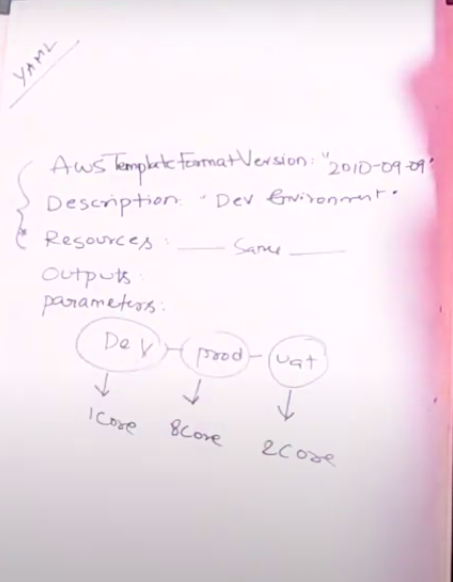 YAML
AWSTemplateFormatVersion: "2010-09-09"
Description: "Dev Environment"
Resources: ___ Same ___
Outputs:
parameters:
Dev prod uat
1Core 8Core 2Core